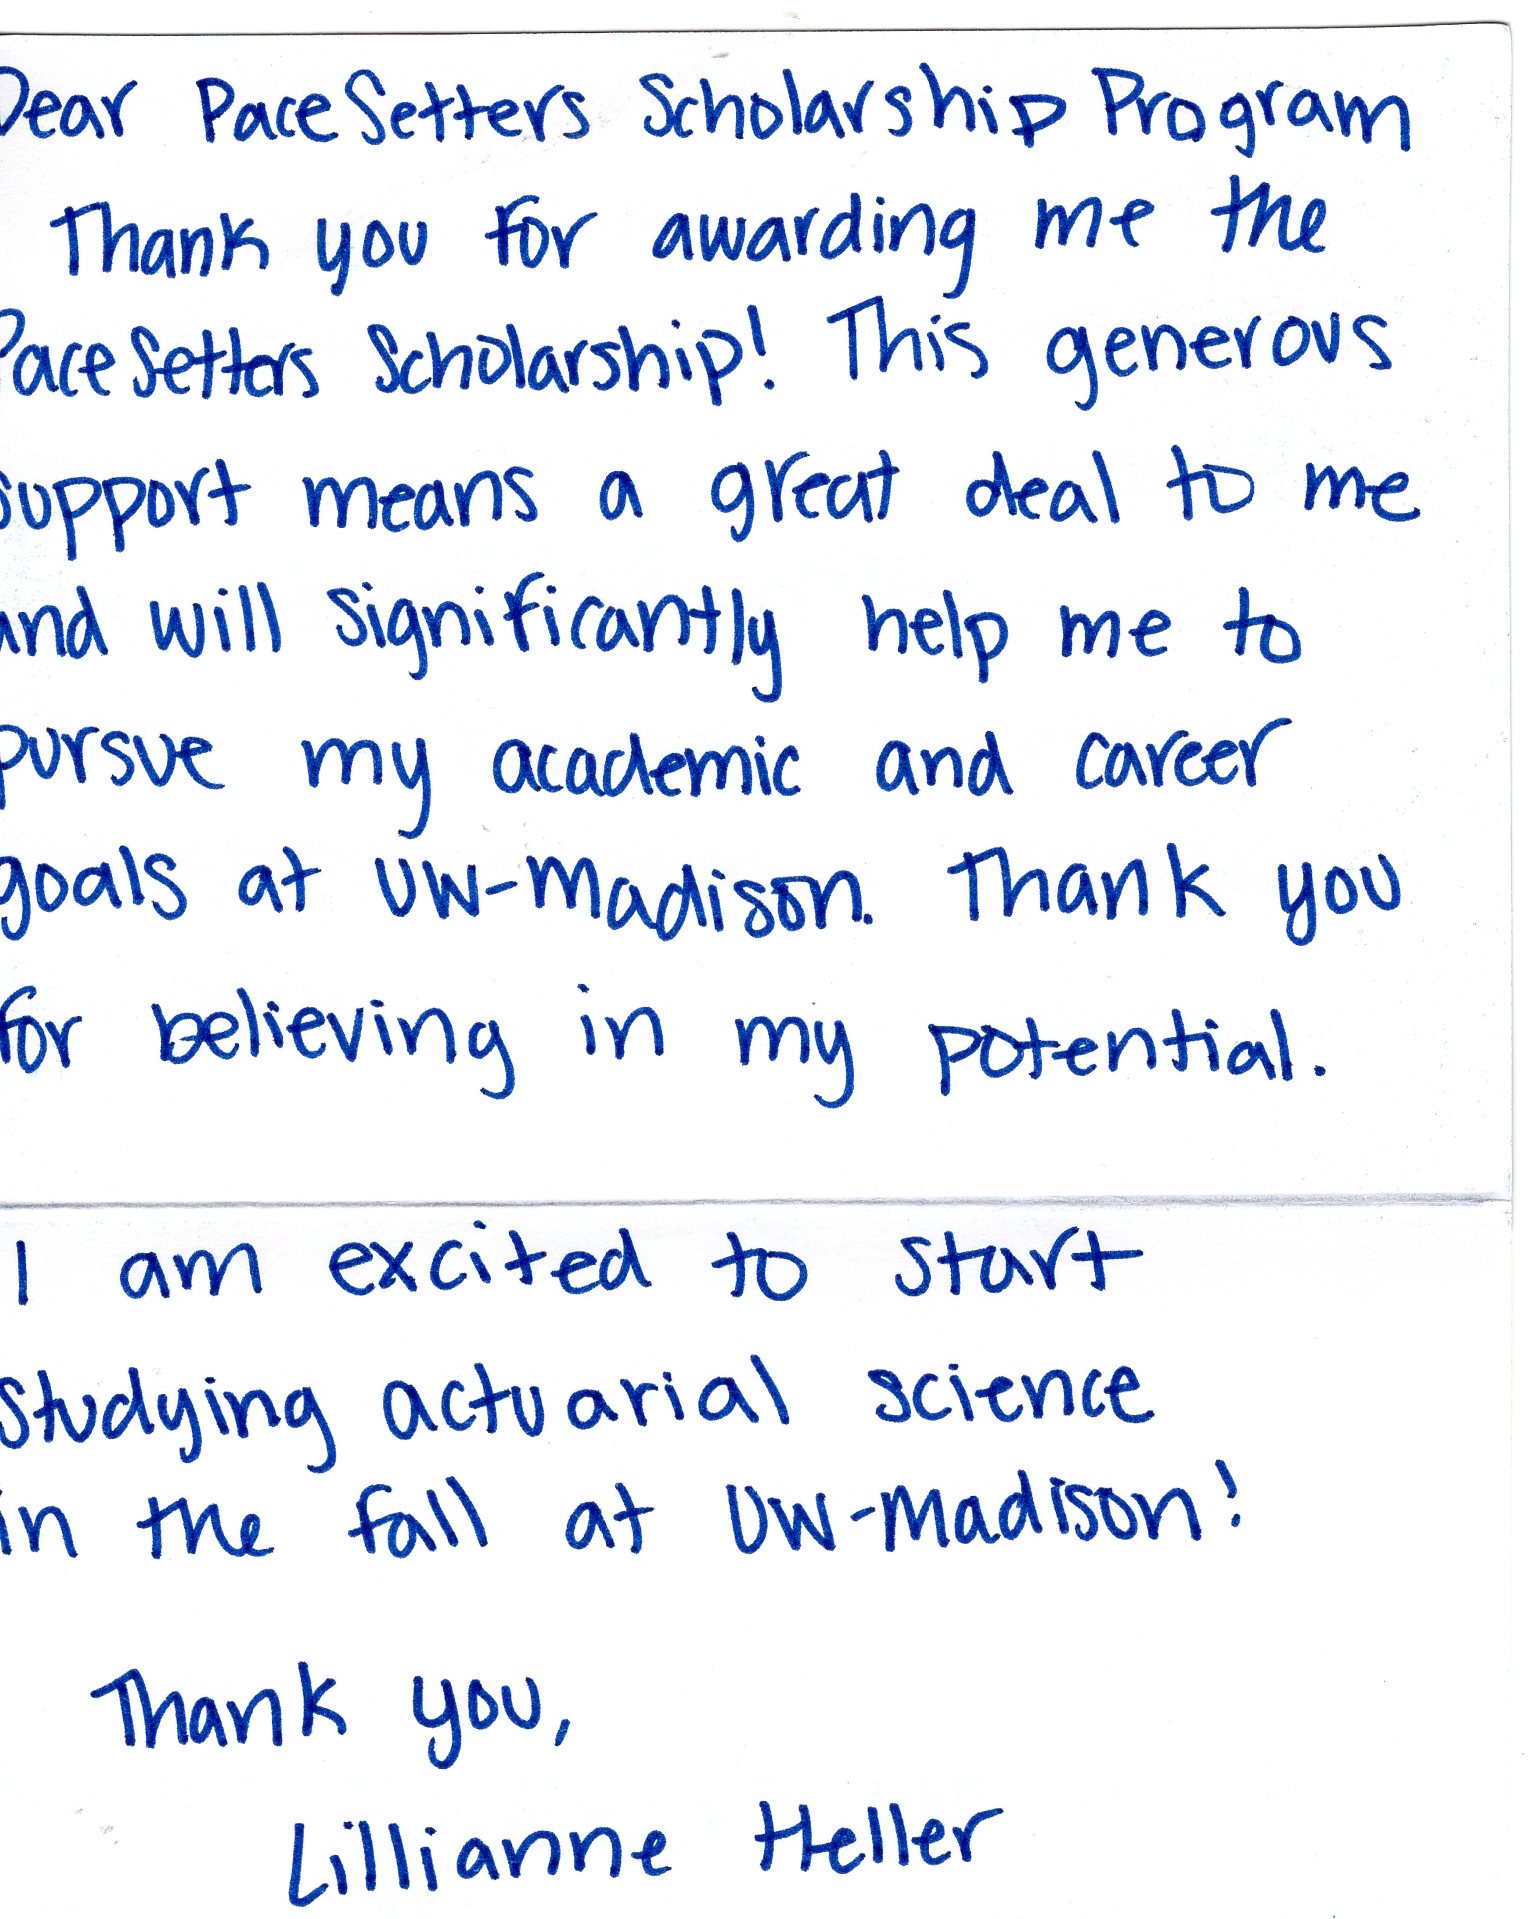 Dear PaceSetters Scholarship Program
Thank you for awarding me the
PaceSetters Scholarship! This generous
support means a great deal to me
and will significantly help me to
pursue my academic and career
goals at UW-Madison. Thank you
for believing in my potential.
I am excited to start
studying actuarial science
in the fall at UW-Madison!
Thank you,
Lillianne Heller